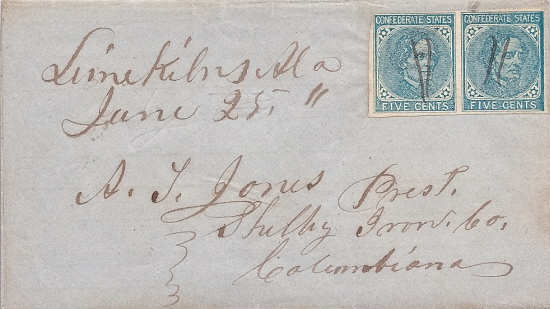 CONFEDERATE STATES CONFEDERATE STATES
FIVE CENTS FIVE CENTS
Lime Kilns Ala
June 25, "
A. T. Jones Prest.
Shelby Iron. Co.
Columbiana